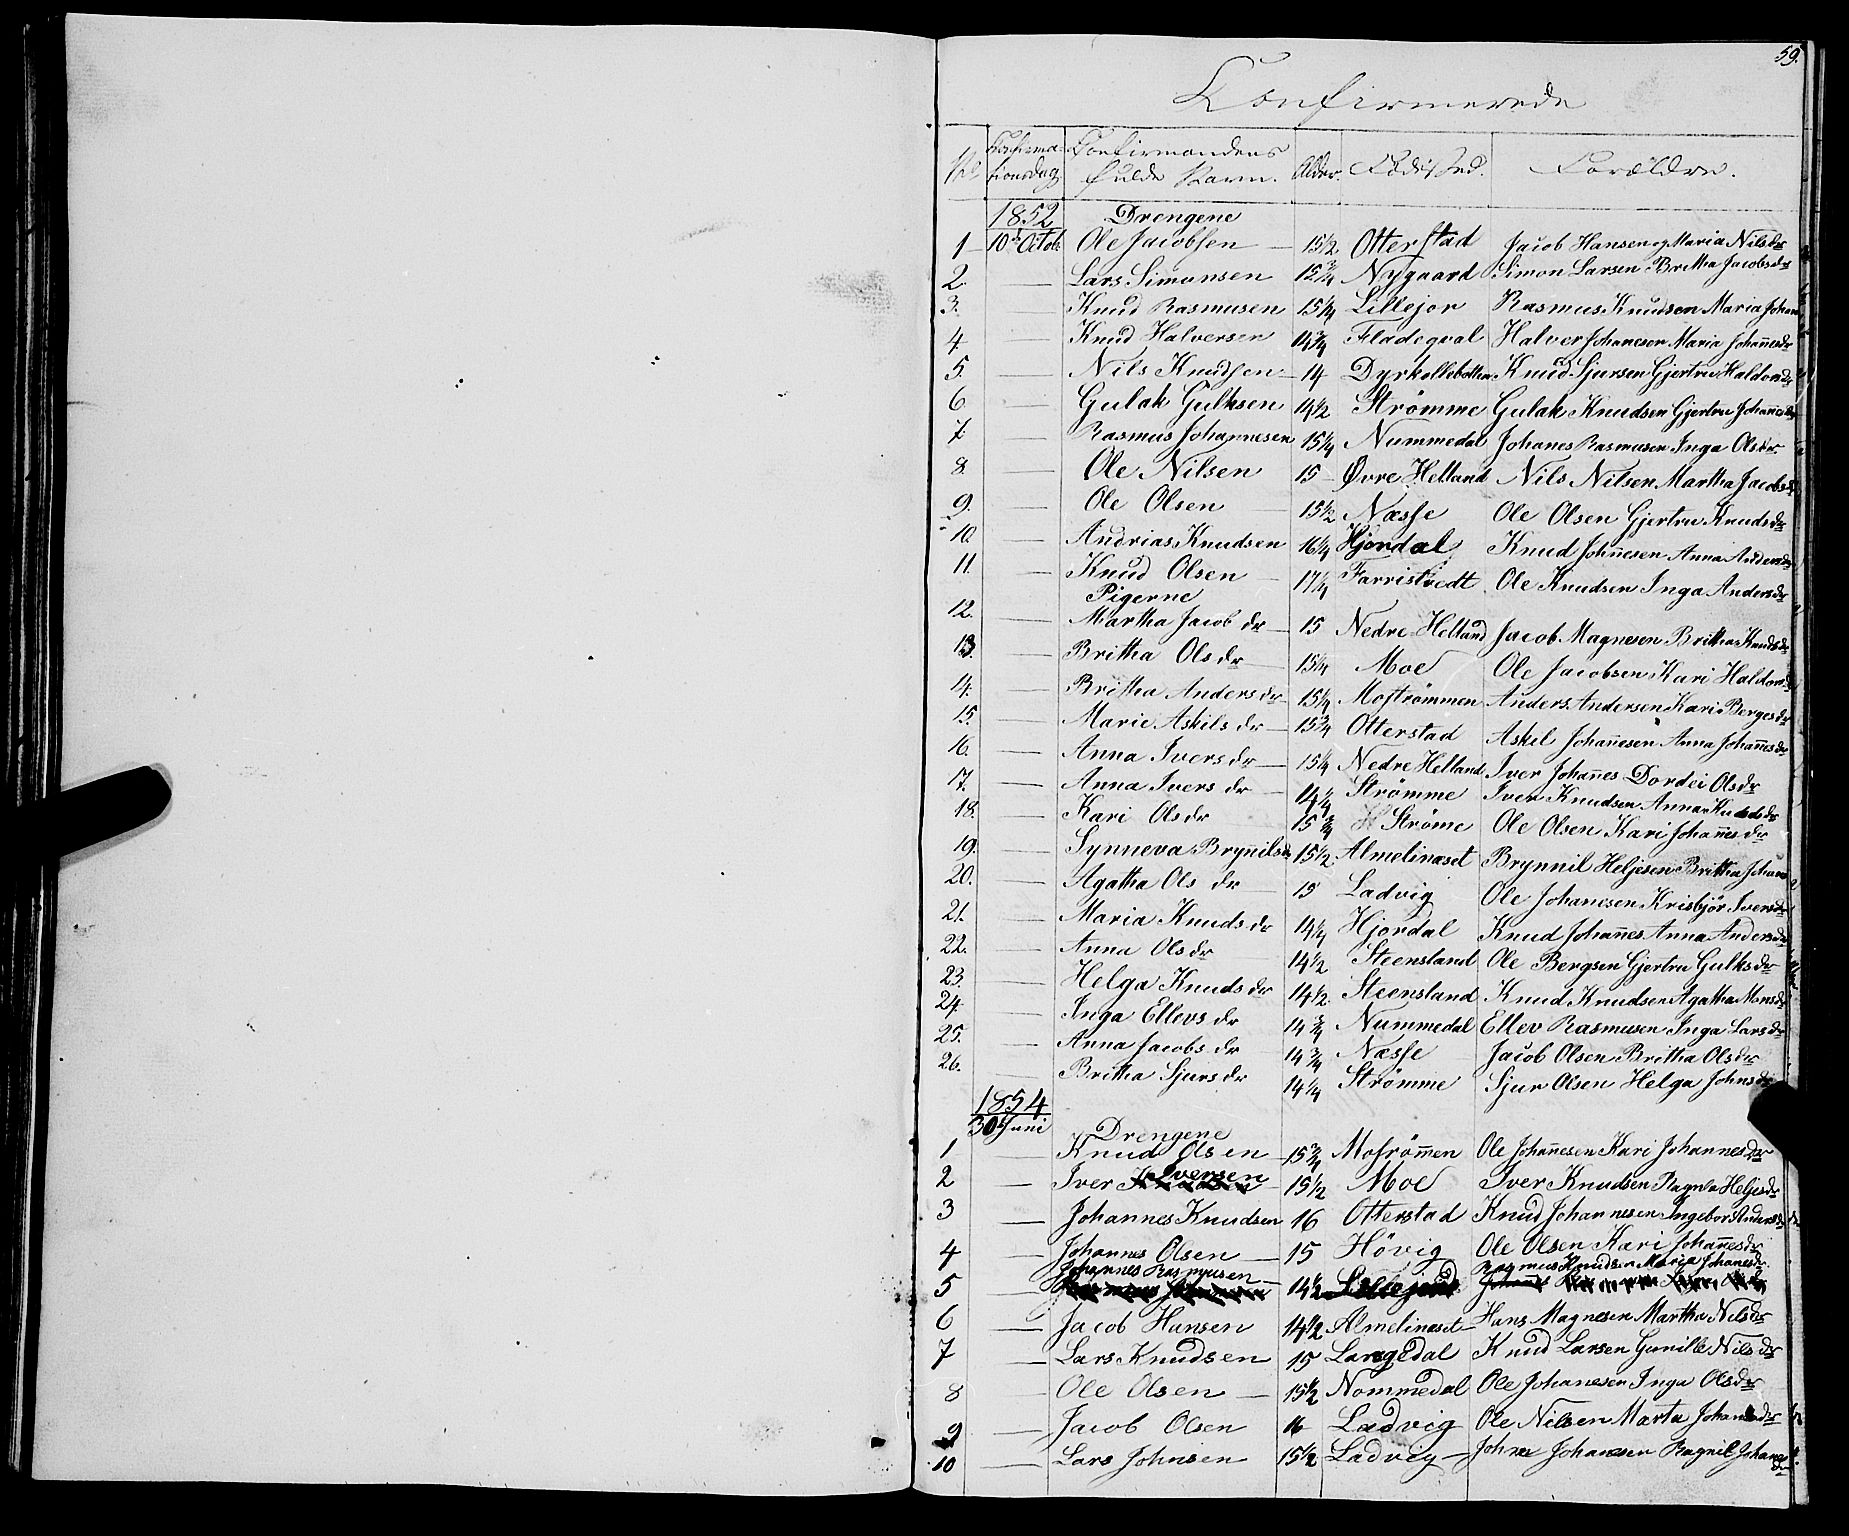 59.
Confirmerede
No. Confirma-tionsdag Confirmandens fulde Navn. Alder. Födested. Forældre.
1852 Drengene
1 10de Octob. Ole Jacobsen 15 1/2 Otterstad Jacob Hansen og Maria Nilsdr
2. Lars Simonsen 15 3/4 Nygaard Simon Larsen Britha Jacobsdr
3. Knud Rasmusen 15 1/4 Lillejor Rasmus Knudsen Maria Johan
4. Knud Halversen 14 3/4 Fladeqval Halver Johanesen Maria Johannesdr
5. Nils Knudsen 14 Dyrkollebotten Knud Sjursen Gjertru Haldorsdr
6. Gulak Gulksen 14 1/2 Strömme Gulak Knudsen Gjertru Johannesdr
7. Rasmus Johannesen 15 1/4 Nummedal Johanes Rasmusen Inga Olsdr
8. Ole Nilsen 15 Øvre Helland Nils Nilsen Martha Jacobsdr
9. Ole Olsen 15 1/2 Næsse Ole Olsen Gjertru Knudsdr
10. Andrias Knudsen 16 1/4 Hjordal Knud Johnesen Anna Andersdr
11. Knud Olsen 17 1/4 Farristvedt Ole Knudsen Inga Andersdr
Pigerne
12. Martha Jacob dr 15 Nedre Helland Jacob Magnesen Britha Knudsdr
13. Britha Olsdr 15 1/4 Moe Ole Jacobsen Kari Haldorsdr
14. Britha Anders dr 15 1/4 Moströmmen Anders Andersen Kari Bergesdr
15. Marie Askils dr 15 3/4 Otterstad Askel Johanesen Anna Johannesdr
16. Anna Ivers dr 15 1/4 Nedre Helland Iver Johannes Dordei Olsdr
17. Anna Ivers dr 14 1/4 Strömme Iver Knudsen Anna Knudsdr
18. Kari Olsdr 15 3/4 Ströme Ole Olsen Kari Johannesdr
19. Synneva Brynilsdr 15 1/2 Almelinæset Brynnil Heljesen Britha Johann
20. Agatha Ols dr 15 Ladvig Ole Johanesen Krisbjör Iversdr
21. Maria Knuds dr 14 1/4 Hjordal Knud Johannes Anna Andersdr
22. Anna Olsdr 14 1/2 Steensland Ole Bergsen Gjertru Gulksdr
23. Helga Knuds dr 14 1/2 Steensland Knud Knudsen Agatha Monsdr
24. Inga Ellevs dr 14 3/4 Nummedal Ellev Rasmusen Inga Larsdr
25. Anna Jacobs dr 14 3/4 Næsse Jacob Olsen Britha Olsdr
26. Britha Sjurs dr 14 1/4 Strömme Sjur Olsen Helga Johnsdr
1854
30te Juni Drengene
1 Knud Olsen 15 3/4 Mosrömmen Ole Johannesen Kari Johannesdr
2 Iver Iversen 15 1/2 Moe Iver Knudsen Ragnla Heljesdr
3 Johannes Knudsen 16 Otterstad Knud Johannesen Ingebor Andersdr
4 Johannes Olsen 15 Hövig Ole Olsen Kari Johannesdr
5 Johannes Rasmusen 14 1/2 Lillejord Rasmus Knudsen Maria Johanesdr
6 Jacob Hansen 14 1/2 Almelinæset Hans Magnesen Martha Nilsdr
7 Lars Knudsen 15 Langedal Knud Larsen Gunille Nilsdr
8 Ole Olsen 15 1/2 Nommedal Ole Johanesen Inga Olsdr
9 Jacob Olsen 16 Ladvig Ole Nilsen Marta Johansdr
10 Lars Johnsen 15 1/2 Ladvig Johnes Johanesen Ragnil Johanesdr